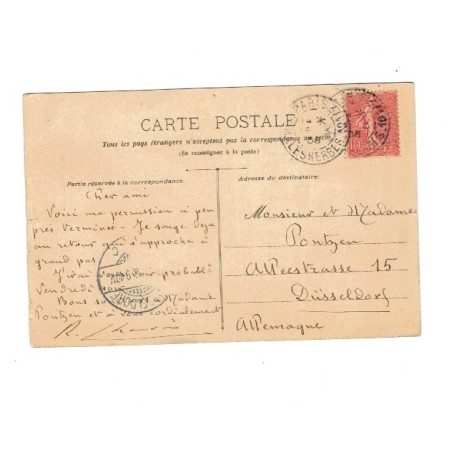 CARTE POSTALE
Tous les pays étrangers n'acceptent pas la correspondance au recto
(Se renseigner à la poste)
Partie réservée à la correspondance.
Adresse du destinataire:
Cher ami
Voici ma permission à peu
près terminée - Je songe déjà
au retour qui s'approche à
grand pas
J'irai vous voir probablt
Vendredi soir
Bons à Madame
Pontzen et à vous cordialement
R.
Monsieur et Madame
Pontzen
Alleestrasse 15
Düsseldorf
Allemagne
PARIS
08
10